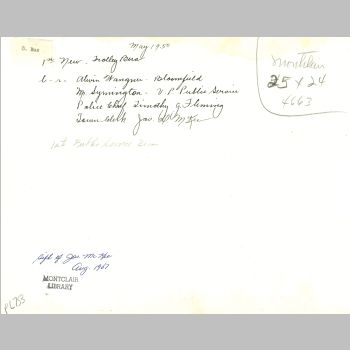 S. Bas
May 1950
1st New Trolley Bus
l-r. Alvin Wangner - Bloomfield
M. Symington - V.P. Public Service
Police Chief Timothy G. Fleming
Town Clerk Jos. McKee
1st
Montclair
25 x 24
4663
Gift of Jos. McKee
Aug. 1967
MONTCLAIR
LIBRARY